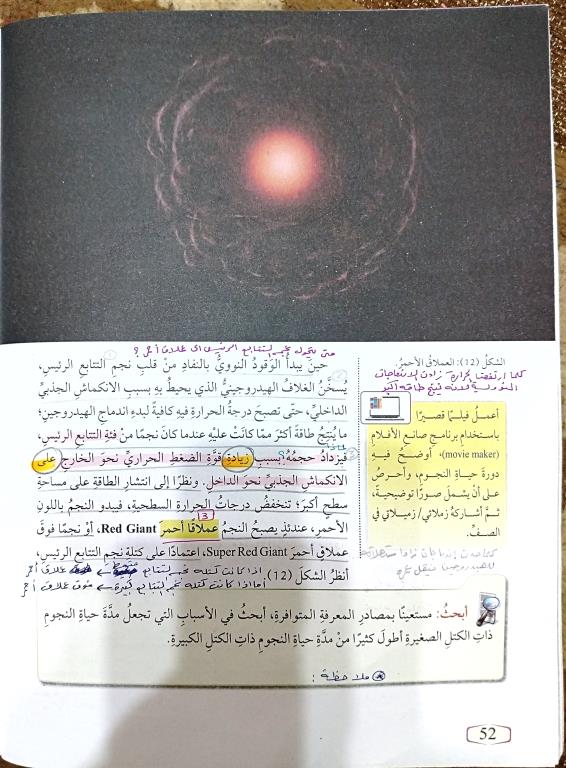 متى يتحول نجم التتابع الرئيسي الى عملاق أحمر ؟
حينَ يبدأُ الوَقودُ النوويُّ بالنفادِ منْ قلبِ نجمِ التتابعِ الرئيسِ،
يُسخَّنُ الغلافُ الهيدروجينيُّ الذي يحيطُ بهِ بسببِ الانكماشِ الجذبيِّ
الداخليِّ، حتّى تصبحَ درجةُ الحرارةِ فيهِ كافيةً لبدءِ اندماجِ الهيدروجينِ؛
ما يُنتِجُ طاقةً أكثرَ ممّا كانَتْ عليْهِ عندما كانَ نجمًا منْ فئةِ التتابعِ الرئيسِ،
فيزدادُ حجمُهُ بسببِ زيادةِ قوَّةِ الضغطِ الحراريِّ نحوَ الخارجِ على
الانكماشِ الجذبيِّ نحوَ الداخلِ. ونظرًا إلى انتشارِ الطاقةِ على مساحةِ
سطحٍ أكبرَ؛ تنخفضُ درجاتُ الحرارةِ السطحيةِ، فيبدو النجمُ باللونِ
3
الأحمرِ، عندئذٍ يصبحُ النجمُ عملاقًا أحمرَ Red Giant، أوْ نجمًا فوقَ
عملاقٍ أحمرَ Super Red Giant، اعتمادًا على كتلةِ نجمِ التتابعِ الرئيسِ،
أنظرُ الشكلَ (12).
اذا كانت كتلة نجم التتابع متوسطة ← عملاق أحمر
أما اذا كانت كتلة نجم التتابع كبيرة ← فوق عملاق أحمر
الشكلُ (12): العملاقُ الأحمرُ.
كلما ارتفعت الحرارة زادت الاندماجات
أعملُ فيلمًا قصيرًا
باستخدامِ برنامجِ صانعِ الأفلامِ
(movie maker)، أوضحُ فيهِ
دورةَ حياةِ النجومِ، وأحرصُ
على أنْ يشملَ صورًا توضيحيةً،
ثمَّ أشاركُهُ زملائي/ زميلاتي في
الصفِّ.
أبحثُ: مستعينًا بمصادرِ المعرفةِ المتوافرةِ، أبحثُ في الأسبابِ التي تجعلُ مدَّةَ حياةِ النجومِ
ذاتِ الكتلِ الصغيرةِ أطولَ كثيرًا منْ مدَّةِ حياةِ النجومِ ذاتِ الكتلِ الكبيرةِ.
ملاحظة :
52